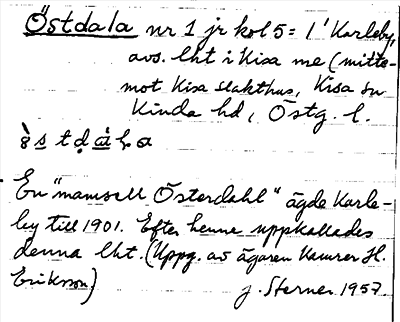 Östdala nr 1 jr kol 5 = 1' Karleby,
avs. lht i Kisa me (mitte-
mot Kisa slakthus, Kisa sn
Kinda hd, Östg. l.
En "mamsell Österdahl" ägde Karle-
by till 1901. Efter henne uppkallades
denna lht. (Uppg. av ägaren Kamrer H.
Erikson)
J. Sterner 1957